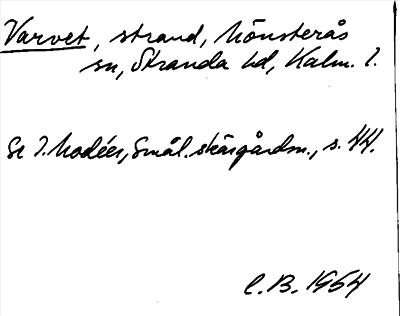 Varvet, strand, Mönsterås
sn, Stranda hd, Kalm. l.
Se I. Modéer, Smål. skärgårdsn., s. 44.
C.B. 1954